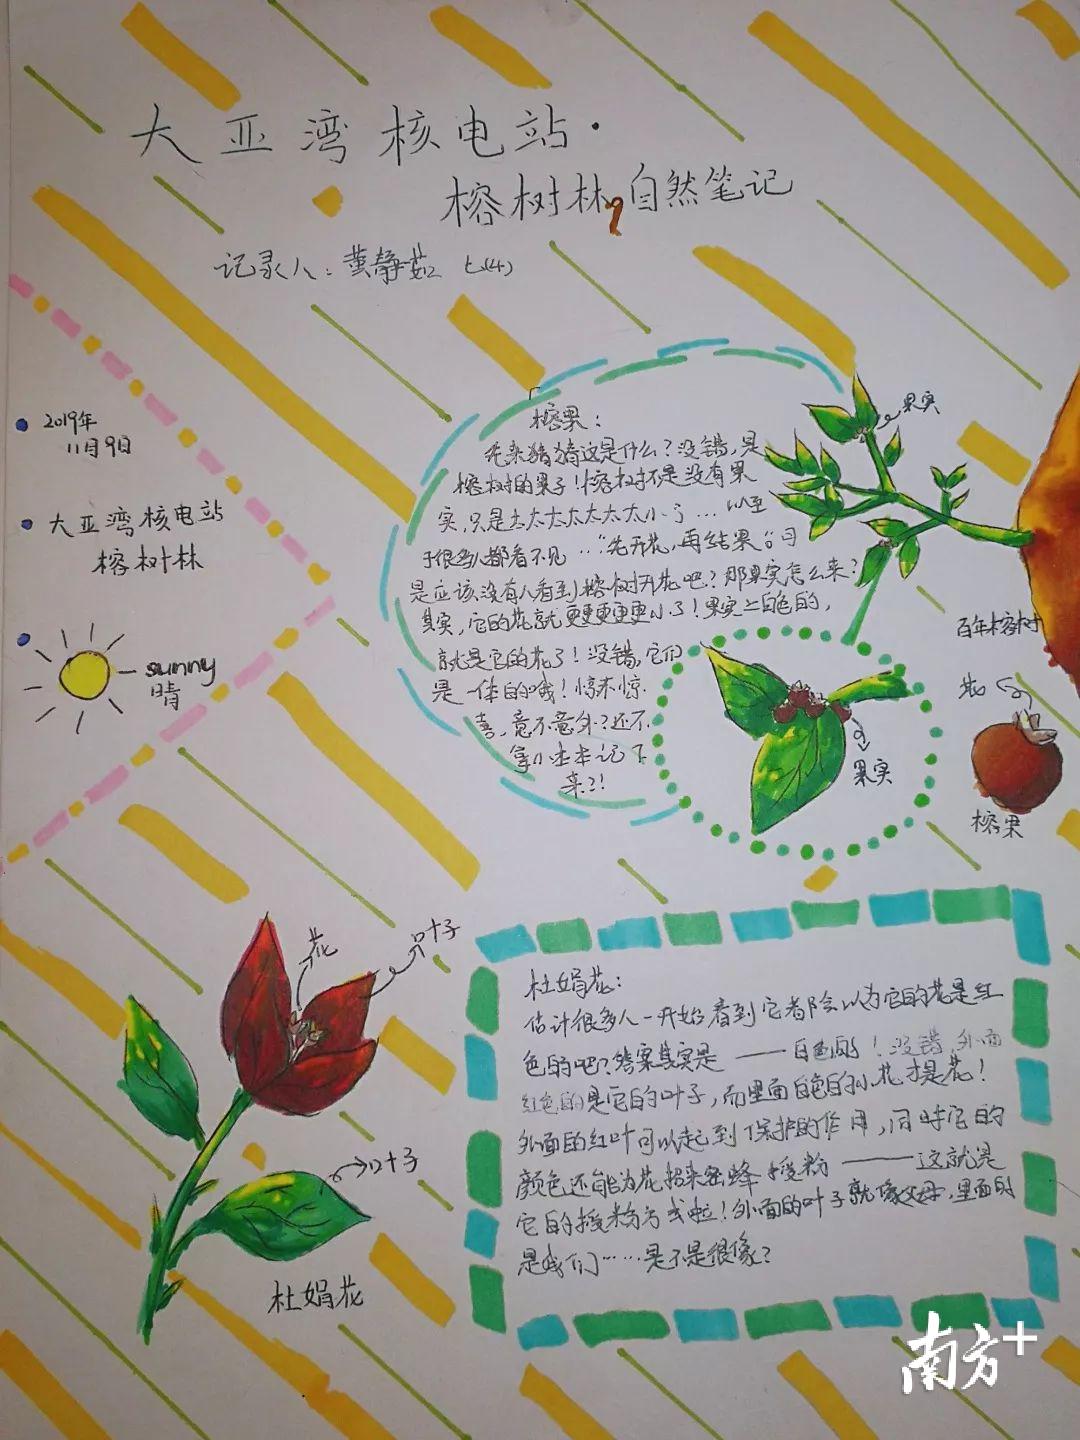 大亚湾核电站·
榕树林,自然笔记
记录人：黄静茹 七(4)
2019年
11月9日
大亚湾核电站
榕树林
sunny
晴
榕果：
先来猜猜这是什么？没错，是
榕树的果子！榕树不是没有果
实，只是太太太太太太小了…以至
于很多人都看不见…"先开花，再结果"可
是应该没有人看到榕树开花吧？那果实怎么来？
其实，它的花就更更更更更小了！果实上白色的，
就是它的花了！没错，它们
是一体的哦！惊不惊
喜，意不意外？还不
拿小本本记下
来？！
果实
百年榕树
花
果实
榕果
花
叶子
叶子
杜娟花
杜娟花：
估计很多人一开始看到它都会以为它的花是红
色的吧？答案其实是——白色的！没错，外面
红色的是它的叶子，而里面白色的小花才是花！
外面的红叶可以起到保护的作用，同时它的
颜色还能为花招来蜜蜂授粉——这就是
它的授粉方式啦！外面的叶子就像父母，里面的
是我们……是不是很像？
南方+